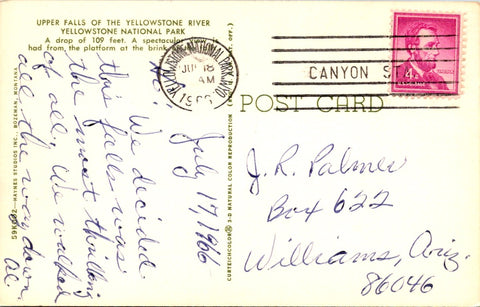 UPPER FALLS OF THE YELLOWSTONE RIVER
YELLOWSTONE NATIONAL PARK
A drop of 109 feet. A spectacular
had from the platform at the brink
July 17, 1966
We decided
this falls was
the most thrilling
of all. We walked
all the way down.
Al.
YELLOWSTONE NATIONAL PARK, WYO.
JUL 18
AM
1966
CANYON STA.
4¢
POST CARD
J.R. Palmer
Box 622
Williams, Ariz.
86046
CURTEICHCOLOR® 3-D NATURAL COLOR REPRODUCTION
HAYNES STUDIOS INC. BOZEMAN, MONTANA